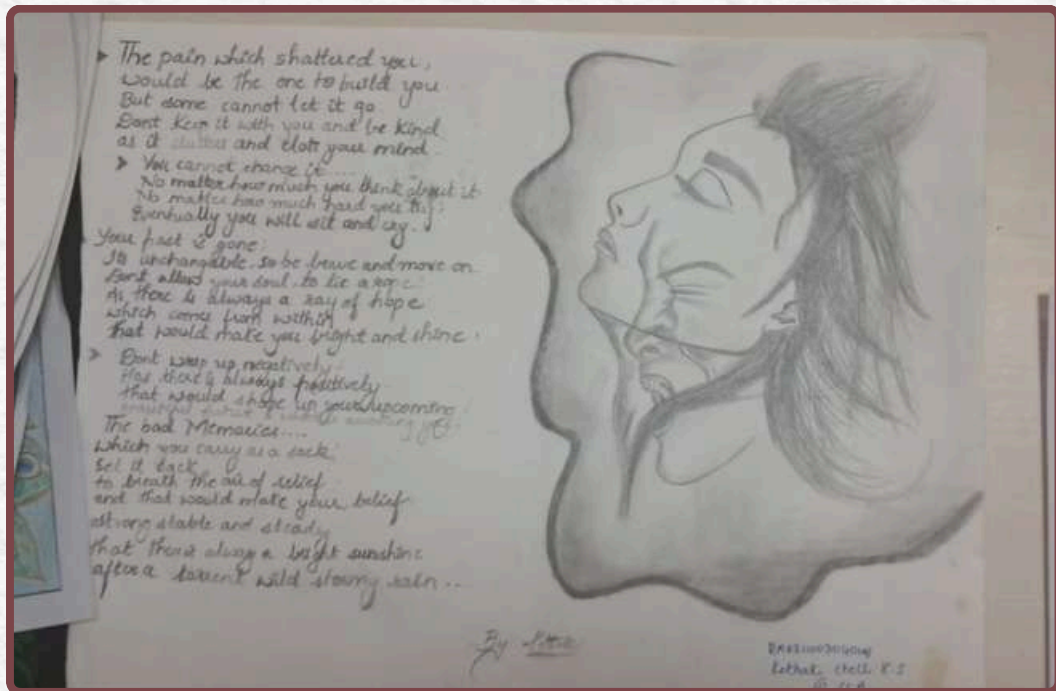 The pain which shattered you,
would be the one to build you.
But some cannot let it go
Dont keep it with you and be kind
as it and clots your mind
You cannot change it....
No matter how much you think about it
No matter how much hard you try;
Eventually you will sit and cry.
Your past is gone;
Its unchangable, so be brave and move on
Dont allow your soul, to tie a rope
As there is always a ray of hope
which comes from within
That would make you bright and shine.
Dont wrap up negatively
Has there is always positively
that would shape up your upcoming
The bad Memories....
which you carry as a sack
Set it back
to breath the air of relief
and that would make your belief
strong stable and steady
that there always a bright sunshine
after a torrent wild stormy rain..
By